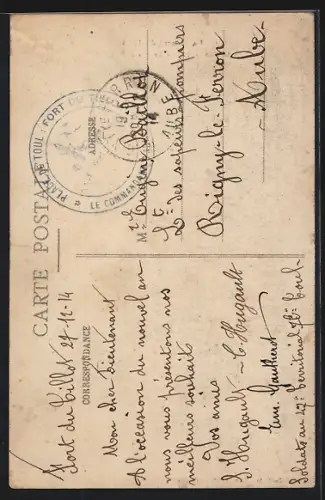 CARTE POSTALE
CORRESPONDANCE
ADRESSE
PLACE DE TOUL - FORT DU TILLOT
LE COMMANDANT
Fort du Tillot 29-12-14
Mon cher Lieutenant
A l'occasion du nouvel an
nous vous présentons nos
meilleurs souhaits
Vos amis
J. Hugault - C. Hugault
Em. Gautherot
Soldats au 47e territorial Toul
Mr Eugène
Lt des sapeurs pompiers
Rigny-le-Ferron
Aube